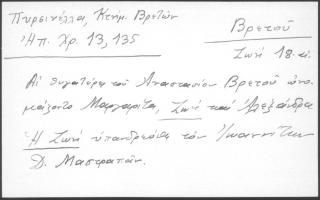 Πυρσινέλλα, Κτήμ. Βρετῶν
Ἠπ. Χρ. 13, 135
Βρετοῦ
Ζωή 18. αἰ.
Αἱ θυγατέρες τοῦ Ἀναστασίου Βρετοῦ ὠνο-
μάζοντο Μαργαρίτα, Ζωή καί Ἀλεξάνδρα
Ἡ Ζωή ὑπανδρεύθη τόν Ἰωαννίτην
Δ. Μαστραπᾶν.